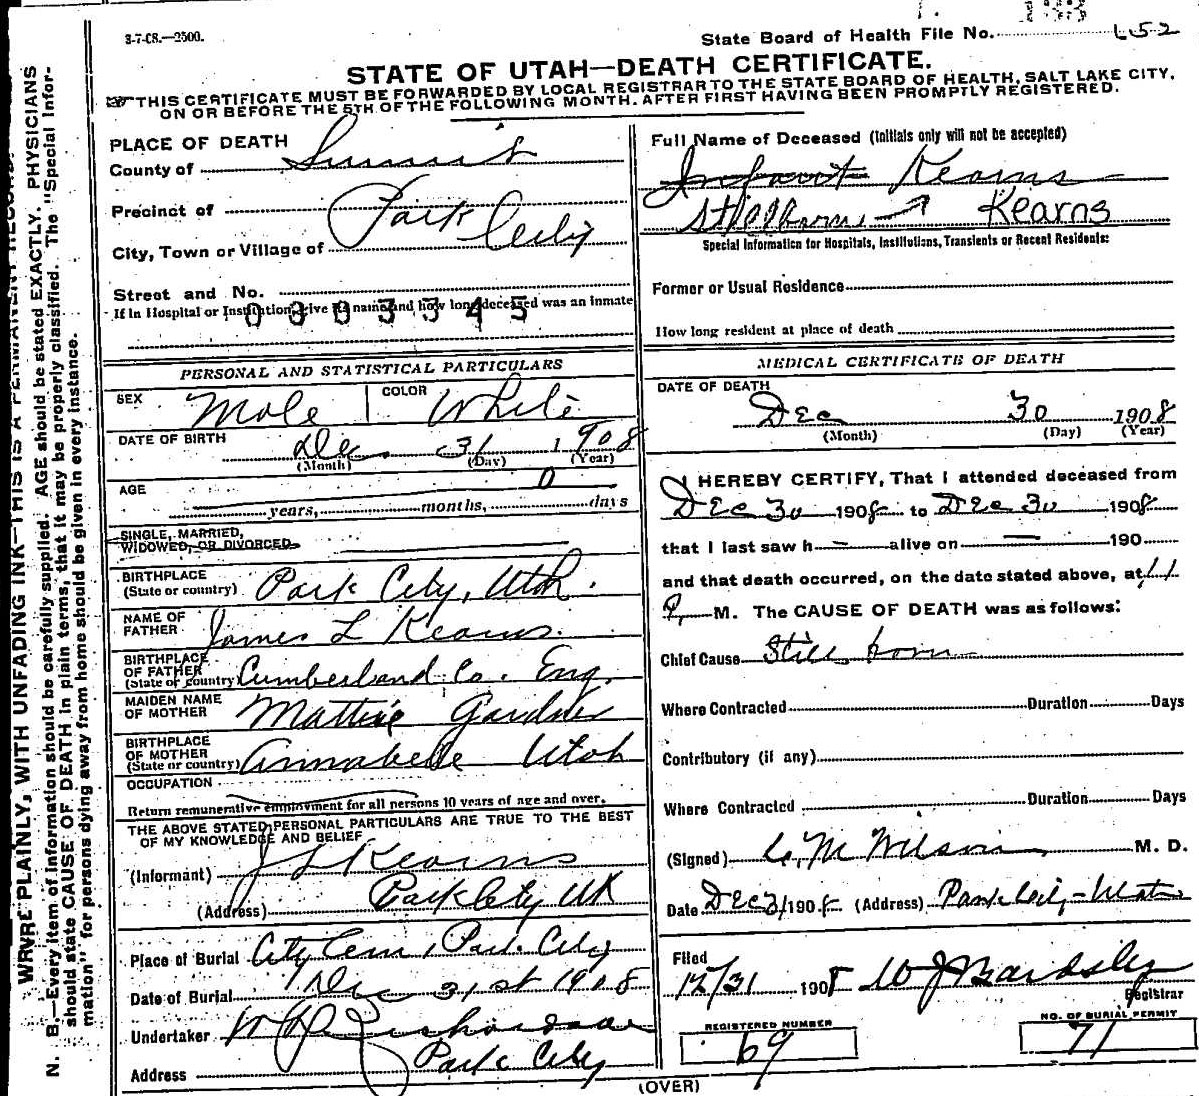 3-7-08.—2500.
State Board of Health File No. 652
STATE OF UTAH—DEATH CERTIFICATE.
THIS CERTIFICATE MUST BE FORWARDED BY LOCAL REGISTRAR TO THE STATE BOARD OF HEALTH, SALT LAKE CITY,
ON OR BEFORE THE 5TH OF THE FOLLOWING MONTH. AFTER FIRST HAVING BEEN PROMPTLY REGISTERED.
WRITE PLAINLY, WITH UNFADING INK—THIS IS A PERMANENT RECORD.
N. B.—Every item of information should be carefully supplied. AGE should be stated EXACTLY. PHYSICIANS
should state CAUSE OF DEATH in plain terms, that it may be properly classified. The "Special Infor-
mation" for persons dying away from home should be given in every instance.
PLACE OF DEATH
County of Summit
Precinct of
Park City
City, Town or Village of
Street and No.
If in Hospital or Institution, give its name and how long deceased was an inmate
0303345
Full Name of Deceased (Initials only will not be accepted)
Infant Kearns
Stillborn Kearns
Special Information for Hospitals, Institutions, Transients or Recent Residents:
Former or Usual Residence
How long resident at place of death
PERSONAL AND STATISTICAL PARTICULARS
SEX Male COLOR White
DATE OF BIRTH Dec 31 1908
(Month) (Day) (Year)
AGE 0
years, months, days
SINGLE, MARRIED,
WIDOWED, OR DIVORCED
BIRTHPLACE
(State or country) Park City, Utah.
NAME OF
FATHER James L Kearns.
BIRTHPLACE
OF FATHER
(State or country) Cumberland Co. Eng.
MAIDEN NAME
OF MOTHER Mattie Gardner
BIRTHPLACE
OF MOTHER
(State or country) Annabelle Utah
OCCUPATION
Return remunerative employment for all persons 10 years of age and over.
THE ABOVE STATED PERSONAL PARTICULARS ARE TRUE TO THE BEST
OF MY KNOWLEDGE AND BELIEF
(Informant) J L Kearns
(Address) Park City Ut
Place of Burial City Cem, Park City
Date of Burial Dec 31st 1908
Undertaker Richardson
Address Park City
MEDICAL CERTIFICATE OF DEATH
DATE OF DEATH
Dec 30 1908
(Month) (Day) (Year)
I HEREBY CERTIFY, That I attended deceased from
Dec 30 1908 to Dec 30 1908
that I last saw h— alive on — 190
and that death occurred, on the date stated above, at 11
P M. The CAUSE OF DEATH was as follows:
Chief Cause Still born
Where Contracted Duration Days
Contributory (if any)
Where Contracted Duration Days
(Signed) C. M Wilson M. D.
Date Dec 31 1908. (Address) Park City—Utah
Filed
12/31 1908 W J Beardsley
Registrar
REGISTERED NUMBER
69
NO. OF BURIAL PERMIT
71
(OVER)